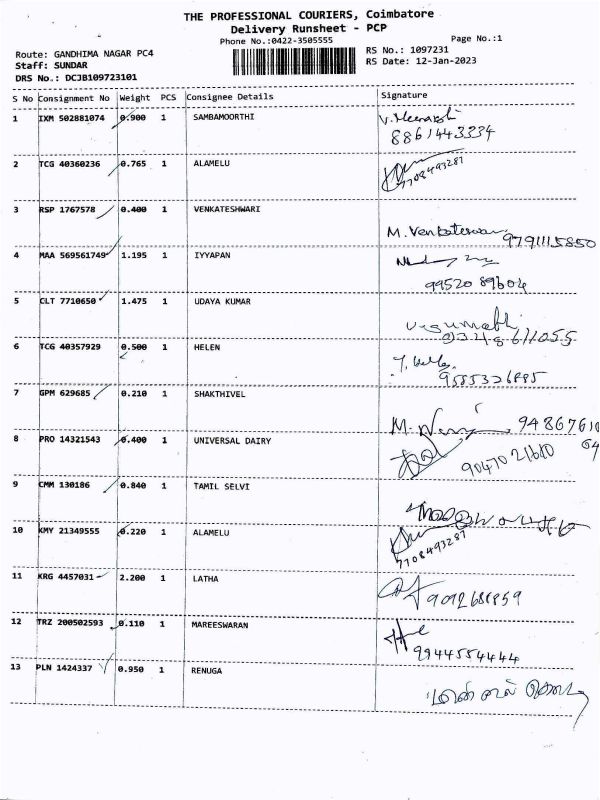 THE PROFESSIONAL COURIERS, Coimbatore
Delivery Runsheet - PCP
Phone No.:0422-3505555
Page No.:1
Route: GANDHIMA NAGAR PC4
RS No.: 1097231
Staff: SUNDAR
RS Date: 12-Jan-2023
DRS No.: DCJB109723101
S No Consignment No Weight PCS Consignee Details Signature
1 IXM 502881074 0.900 1 SAMBAMOORTHI V. Meenakshi
8861443334
2 TCG 40360236 0.765 1 ALAMELU
7708493287
3 RSP 1767578 0.400 1 VENKATESHWARI M. Venkateswari
9791115850
4 MAA 569561749 1.195 1 IYYAPAN
99520 89604
5 CLT 7710650 1.475 1 UDAYA KUMAR
6 TCG 40357929 0.500 1 HELEN
7 GPM 629685 0.210 1 SHAKTHIVEL M.
94867610
04
8 PRO 14321543 0.400 1 UNIVERSAL DAIRY
9047021680
9 CMM 130186 0.840 1 TAMIL SELVI
10 KMY 21349555 0.220 1 ALAMELU
7708493287
11 KRG 4457031 2.200 1 LATHA
12 TRZ 200502593 0.110 1 MAREESWARAN
9944554444
13 PLN 1424337 0.950 1 RENUGA